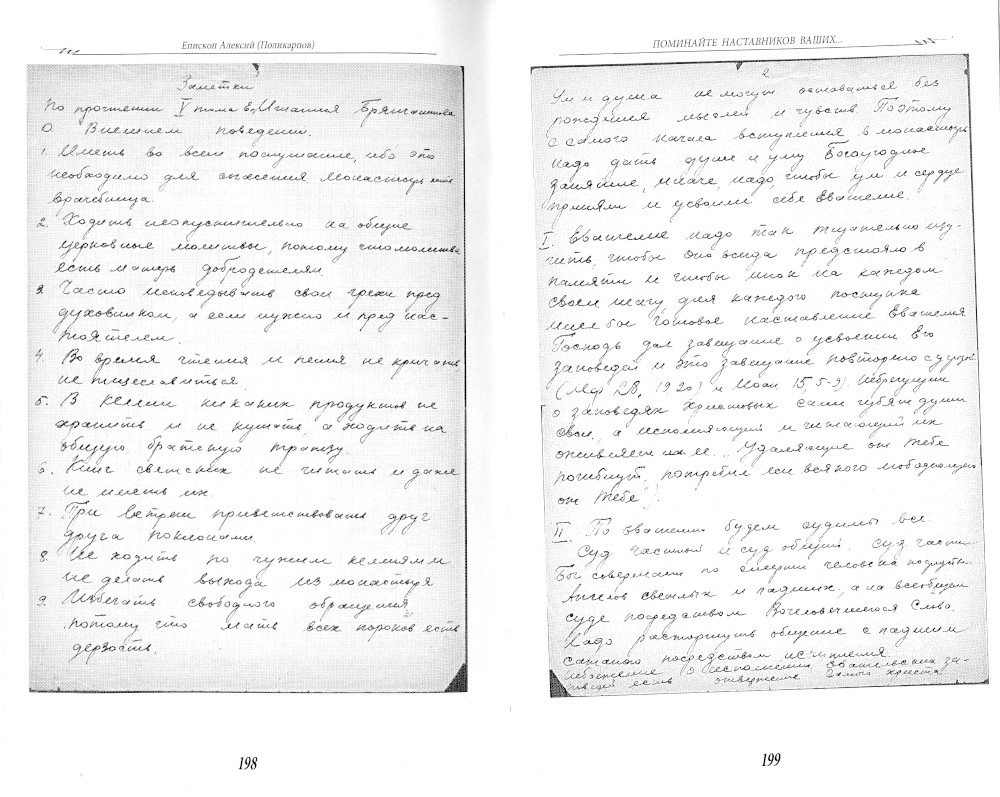 Епископ Алексий (Поликарпов)
Заметки
По прочтении V тома Еп. Игнатия Брянчанинова
О Внешнем поведении.
1. Иметь во всем послушание, ибо это
необходимо для спасения. Монастырь
врачебница.
2. Ходить неопустительно на общие
церковные молитвы, потому что молитва
есть матерь добродетелям.
3. Часто исповедывать свои грехи пред
духовником, а если нужно и пред нас-
тоятелем.
4. Во время чтения и пения не кричать
не тщеславиться.
5. В келии никаких продуктов не
хранить и не кушать, а ходить на
общую братскую трапезу.
6. Книг светских не читать и даже
не иметь их.
7. При встреч приветствовать друг
друга поклонами.
8. Не ходить по чужим келиям и
не делать выхода из монастыря
9. Избегать свободного обращения,
потому что мать всех пороков есть
дерзость.
198
ПОМИНАЙТЕ НАСТАВНИКОВ ВАШИХ...
2
Ум и душа не могут оставаться без
рождения мыслей и чувств. Поэтому
с самого начала вступления в монастырь
надо дать душе и уму Богоугодное
занятие, иначе, надо, чтобы ум и сердце
приняли и усвоили себе Евангелие.
I. Евангелие надо так тщательно изу-
чить, чтобы оно всегда предстояло в
памяти и чтобы инок на каждом
своем шагу для каждого поступка
имел бы готовое наставление Евангелия
Господь дал завещание о усвоении Его
заповедей и это завещание повторяю
(Мф 28, 19.20) и Иоан 15, 5-9). Небрегущии
о заповедях Христовых сами губят души
свои, а исполняющий и читающий их
оживляет их ее. "Удаляющие от Тебе
погибнут, потребил еси всякого любодеющего
от Тебе").
II. По Евангелии будем судимы все.
Суд частный и суд общий. Суд частн.
Бог совершает по смерти человека
Ангелов светлых и падших, а на всеобщем
суде посредством Вочеловечшегося Слова.
Надо расторгнуть общение с падшим
сатаною посредством исчищения.
Небрежение о исполнении Евангельских за-
поведей есть отвержение Самого Христа
199